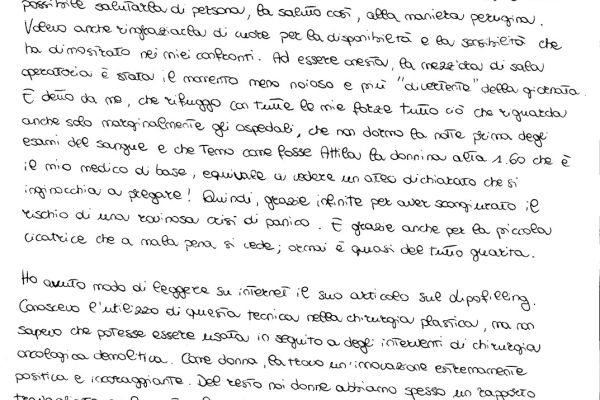 possibile salutarla di persona, la saluto così, alla maniera perugina.
Volevo anche ringraziarla di cuore per la disponibilità e la sensibilità che
ha dimostrato nei miei confronti. Ad essere onesta, la mezz'ora di sala
operatoria è stata il momento meno noioso e più "divertente" della giornata.
E detto da me, che rifuggo con tutte le mie forze tutto ciò che riguarda
anche solo marginalmente gli ospedali, che non dormo la notte prima degli
esami del sangue e che temo come fosse Attila la donnina alta 1.60 che è
il mio medico di base, equivale a vedere un ateo dichiarato che si
inginocchia a pregare! Quindi, grazie infinite per aver scongiurato il
rischio di una rovinosa crisi di panico. E grazie anche per la piccola
cicatrice che a mala pena si vede; ormai è quasi del tutto guarita.
Ho avuto modo di leggere su internet il suo articolo sul lipofilling.
Conoscevo l'utilizzo di questa tecnica nella chirurgia plastica, ma non
sapevo che potesse essere usata in seguito a degli interventi di chirurgia
oncologica demolitica. Come donna, la trovo un'innovazione estremamente
positiva e incoraggiante. Del resto noi donne abbiamo spesso un rapporto